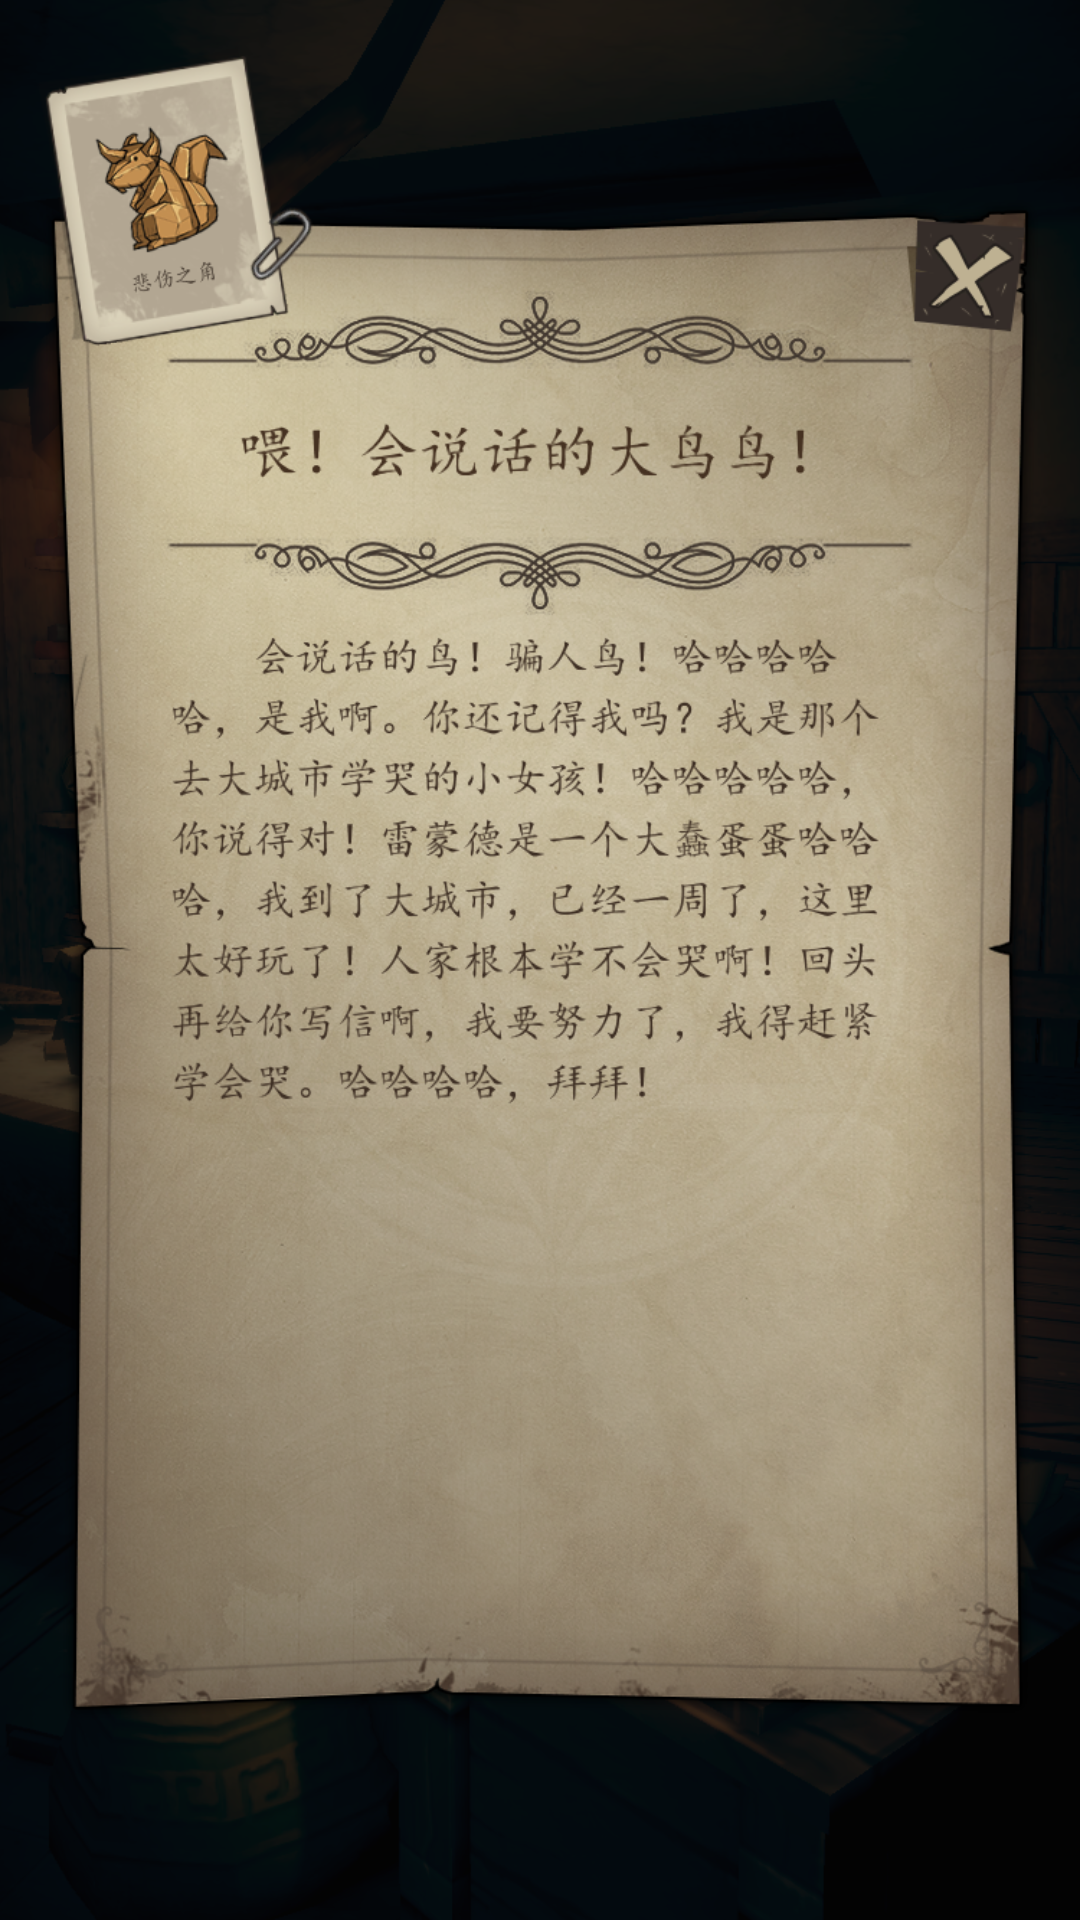 悲伤之角
喂！会说话的大鸟鸟！
会说话的鸟！骗人鸟！哈哈哈哈
哈，是我啊。你还记得我吗？我是那个
去大城市学哭的小女孩！哈哈哈哈哈，
你说得对！雷蒙德是一个大蠢蛋蛋哈哈
哈，我到了大城市，已经一周了，这里
太好玩了！人家根本学不会哭啊！回头
再给你写信啊，我要努力了，我得赶紧
学会哭。哈哈哈哈，拜拜！